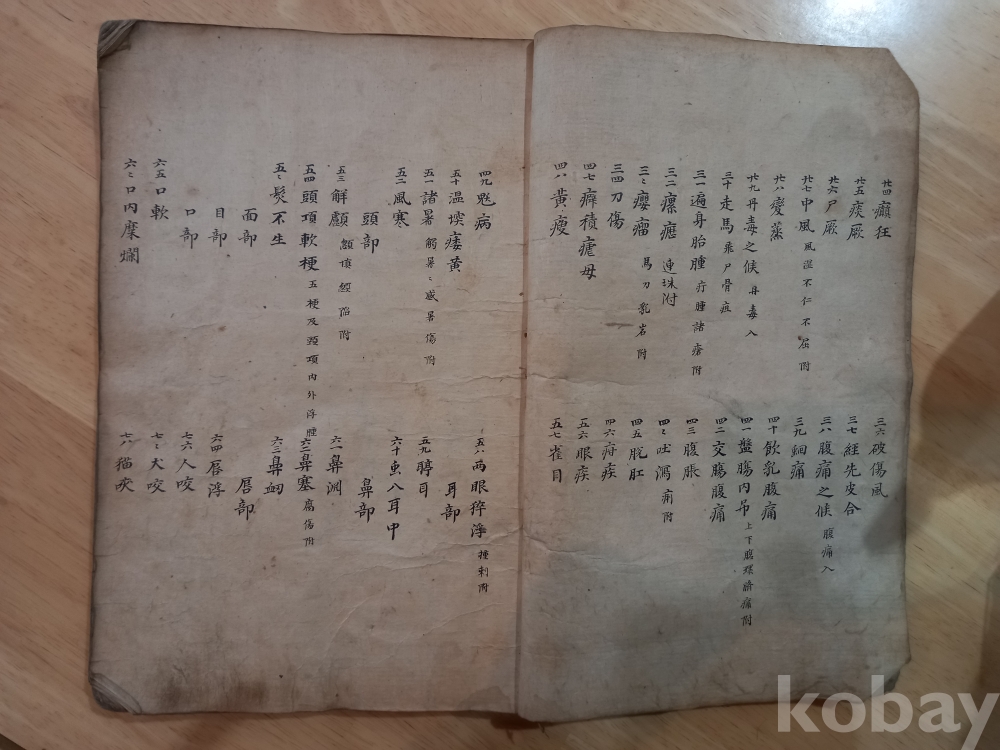 廿四癲狂
廿五痰厥
廿六尸厥
廿七中風 風湿不仁不屈附
廿八变蒸
廿九丹毒之候 丹毒入
三十走馬 乘尸骨疽
三一遍身胎腫 疔腫諸瘡附
三二瘰癧 連珠附
三〻癭瘤 馬刀乳岩附
三四刀傷
四七癖積瘧母
四八黃瘦
三六破傷風
三七經先皮合
三八腹痛之候 腹痛入
三九絪痛
四十飲乳腹痛
四一盤腸内吊 上下腹環臍痛附
四二交腸腹痛
四三腹脹
四〻吐瀉 痢附
四五脫肛
四六痔疾
五六眼疾
五七雀目
四九魃病
五十温壞痿黄
五一諸暑 觸暑〻感暑傷附
五二風寒
頭部
五三解顱 顖填顖陷附
五四頭項軟梗 五梗及頸項内外浮腫
五〻髮不生
面部
目部
口部
六五口軟
六〻口内糜爛
五八兩眼猝浮 撞刺附
耳部
五九聤耳
六十虫入耳中
鼻部
六一鼻渊
六二鼻塞 腐傷附
六三鼻衄
唇部
六四唇浮
七六人咬
七〻犬咬
七八猫咬
kobay